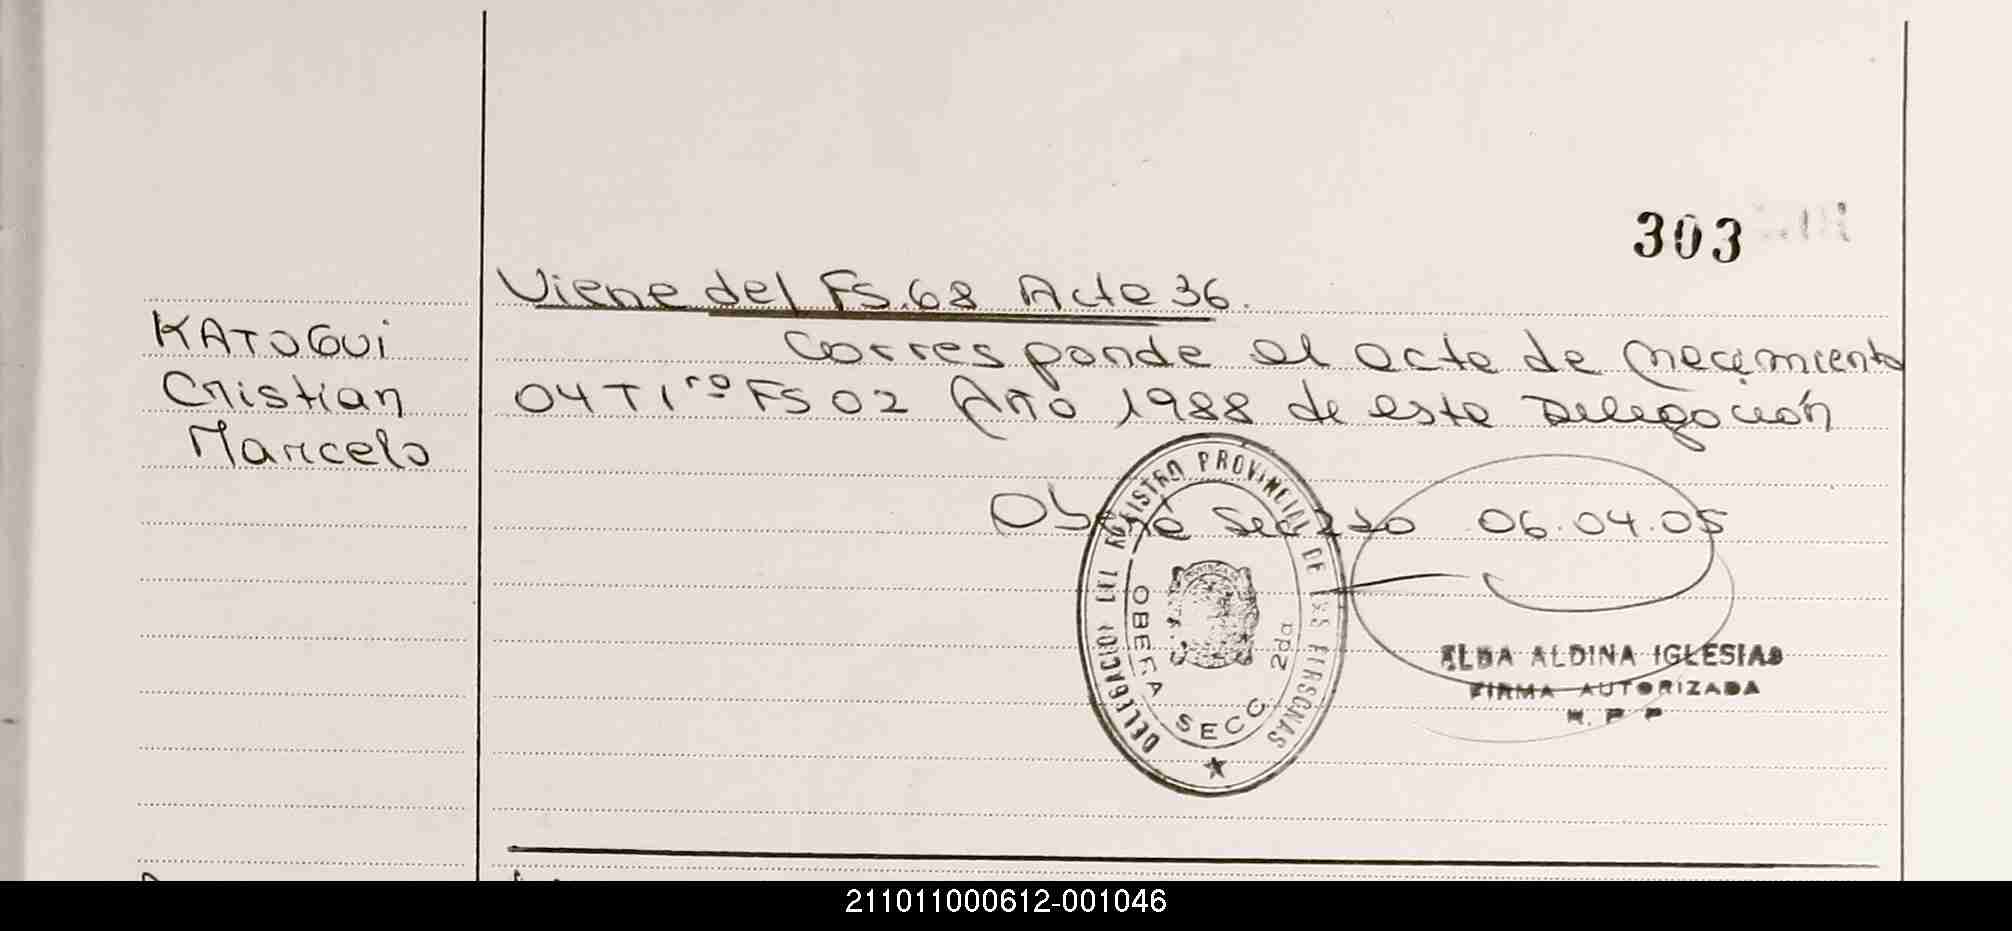 303
Viene del FS.68 Acta 36.
KATOGUI
Cristian
Marcelo
Corresponde al acta de nacimiento
04 T 1ro FS 02 Año 1988 de esta Delegación
Oberá Secc 2da 06.04.05
DELEGACION DEL REGISTRO PROVINCIAL DE LAS PERSONAS
OBERA SECC. 2da
ELBA ALDINA IGLESIAS
FIRMA AUTORIZADA
R. P. P
211011000612-001046